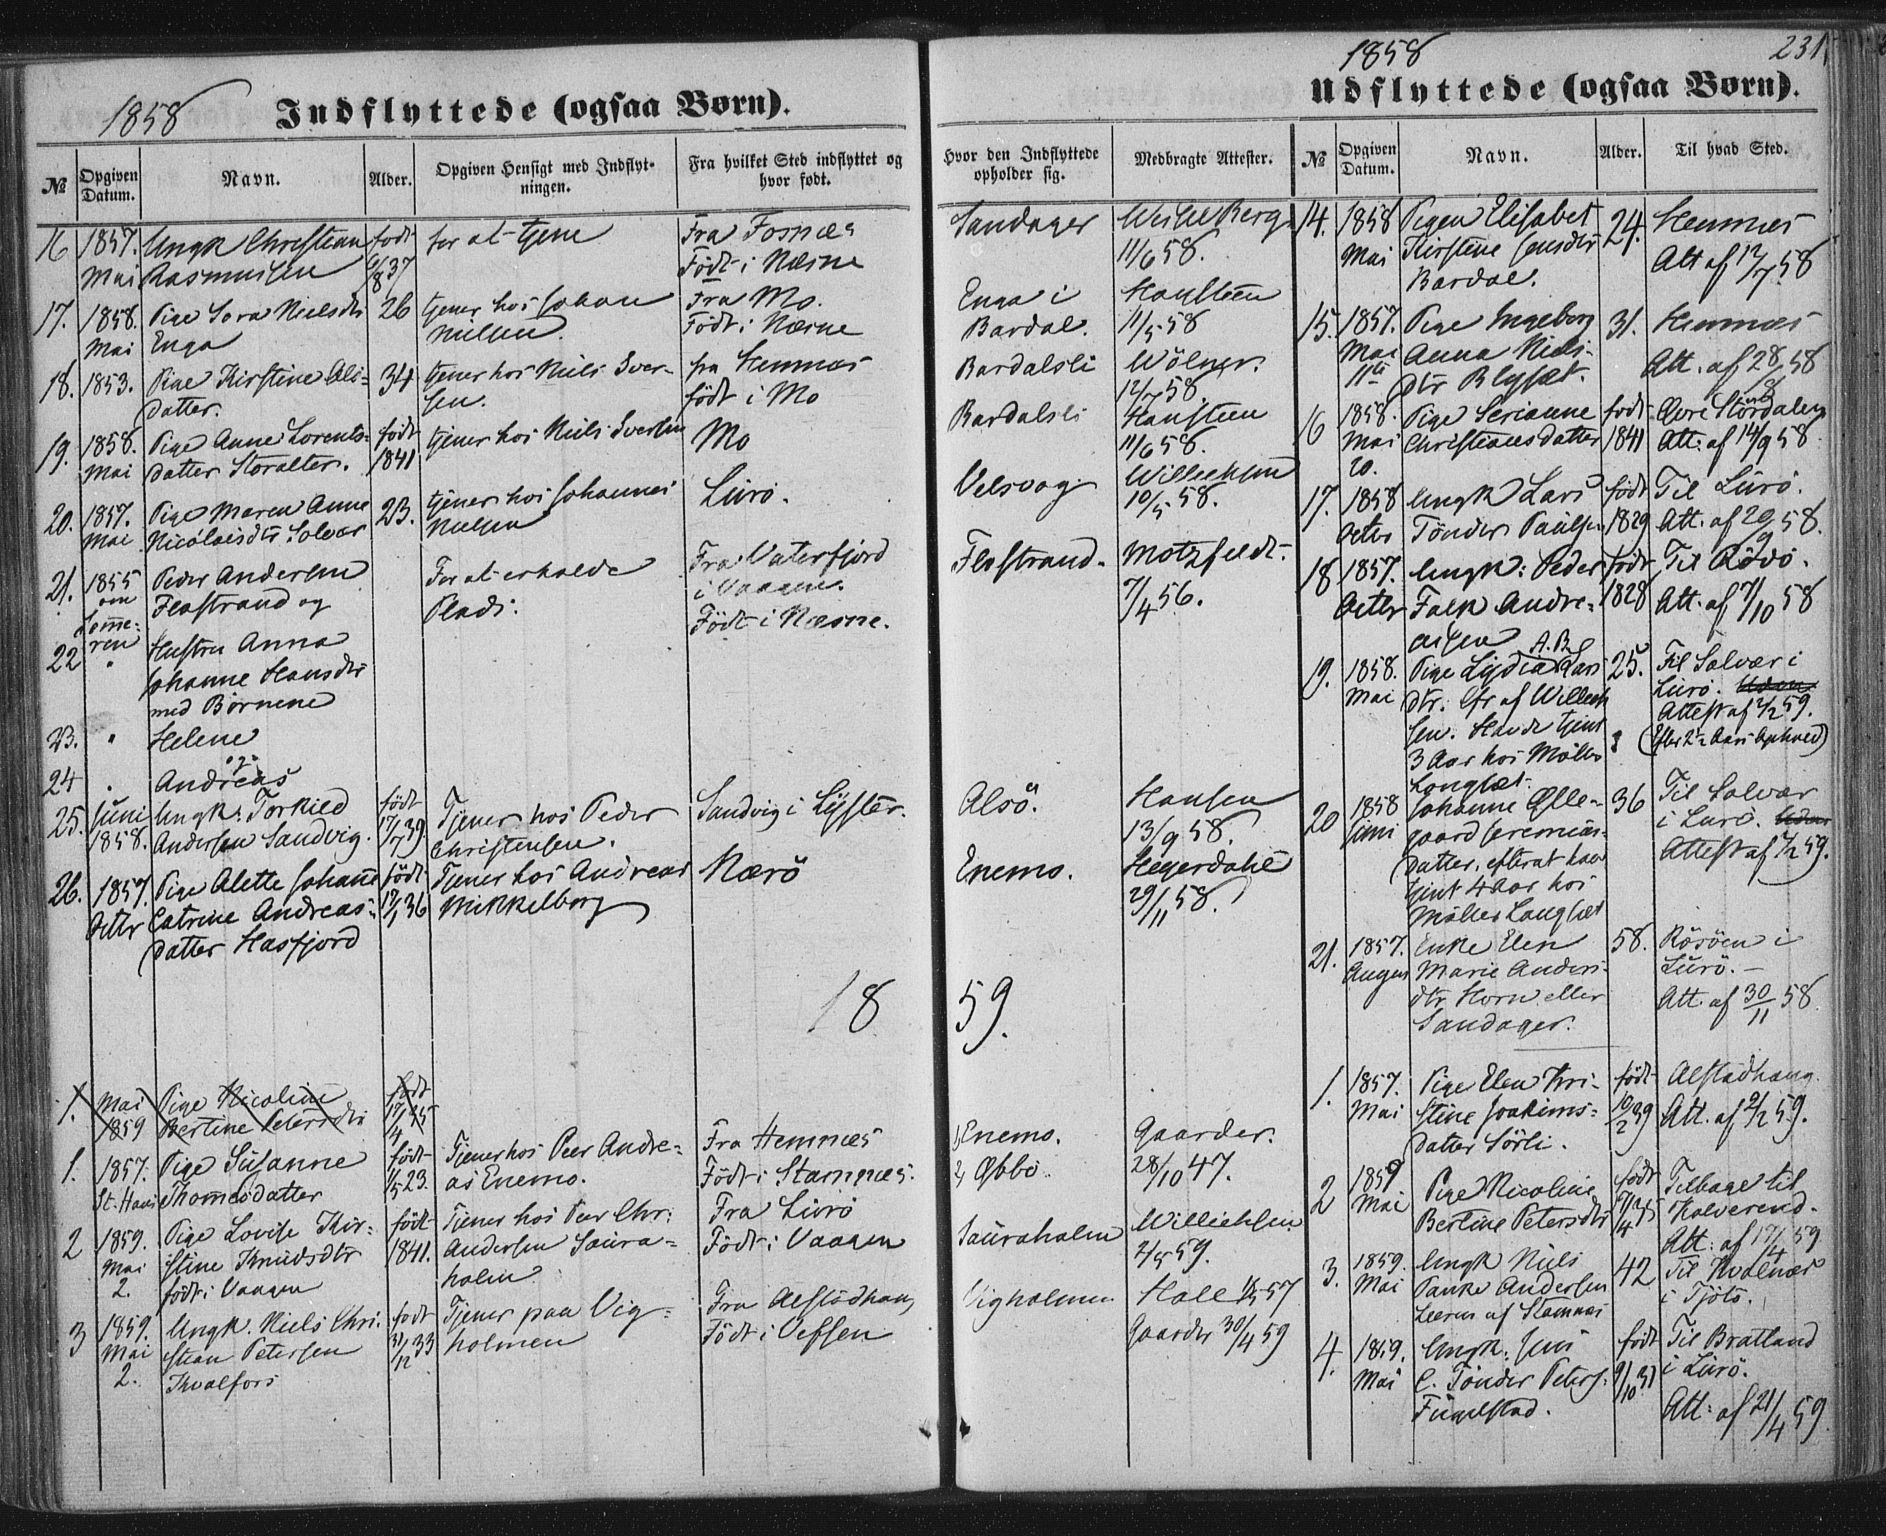 1858
Indflyttede (ogsaa Børn).
№
Opgiven Datum.
Navn.
Alder.
Opgiven Hensigt med Indflytningen.
Fra hvilket Sted indflyttet og hvor født.
16 1857. Ungk Christian født for at tjene Fra Fosnæs
Mai Rasmussen 37 Født i Næsne
17. 1858. Pige Sara Nielsdtr 26 tjener hos Johan Fra Mo.
Mai Enga Nielsen. Født i Næsne
18. 1853. Pige Kirstine Ols- 34 tjener hos Niels Iver- fra Hemnæs
datter. sen. født i Mo
19. 1858. Pige Anne Lorents- født tjener hos Niels Iversen Mo
Mai datter Storalter. 1841
20. 1857. Pige Maren Anne 23. tjener hos Johannes Lurø.
Mai Nicolaisdtr Solvær Nielsen
21. 1855 Peder Andersen For at erholde Fra Vaterfjord
om Flostrand og Plads. i Vaagen.
Somme- Født i Næsne.
ren
22 " Hustru Anna
Johanne Hansdtr
med Børnene
23. " Helene
og
24 " Andreas
25. Juni Ungk. Torkild født Tjener hos Peder Sandvig i Lyster.
1858. Andersen Sandvig. 17/7 39 Christensen.
26. 1857. Pige Alette Johanne født Tjener hos Andreas Nærø
Octbr Catrine Andreas- 17/1 36 Mikkelborg
datter Hasfjord
18
1. Mai Pige Nicoline født
1859 Bertine Petersdtr 17/4 35
1. 1857. Pige Susanne født Tjener hos Peer Andre- Fra Hemnæs
St. Hans Thomesdatter 1/5 23. as Enemo. Født i Stamnæs.
2 1859. Pige Lovise Kir- født Tjener hos Peer Chr. Fra Lurø
Mai stine Knudsdtr 1841. Andersen Saura- Født i Vaagen
2. født i Vaagen holm
3 1859. Ungk. Niels Chri- født Tjener paa Vig- Fra Alstadhaug
Mai stian Petersen 31/12 33 holmen Født i Vefsen
2. Kvalfors
1858
231.
Udflyttede (ogsaa Børn).
Hvor den Indflyttede opholder sig.
Medbragte Attester.
№
Opgiven Datum.
Navn.
Alder.
Til hvad Sted.
Sandager
11/6 58.
Enga i Hansteen
Bardal. 11/5 58
Bardalsli Wölner.
12/7 58.
Bardalsli Hansteen
11/6 58.
Velsvag Willechsen
10/5 58.
Flostrand. Motzfeldt
7/4 56.
Alsö. Hansen
13/9 58.
Enemo. Hegerdahl
29/11 58.
59.
1, Enemo. Gaarder.
2, Øbbø. 28/10 47.
Sauraholm Willechsen
2/5 59.
Vigholmen Hall 57
Gaarder 30/4 59
14. 1858 Pigen Elisabet 24. Hemnæs
Mai Kirstine Jensdtr Att af 12/7 58
Bardal.
15. 1857. Pige Ingeborg 31. Hemnæs
Mai Anna Niels- Att. af 28/8 58
11te dtr Blyset.
16 1858. Pige Serianne født Övre Stördalen
Mai Christiansdatter 1841 Att. af 14/9 58
20.
17. 1858 Ungk Lars født Til Lurø.
Octbr Tönder Paulsen 1829 Att. af 20/9 58.
18 1857. Ungk: Peder født Til Rödö.
Octbr Falk Andre- 1828 Att. af 7/10 58
assen A.B.
19. 1858. Pige Lydia Lars- 25. Til Solvær i
Mai dtr. Efr af Willech- Lurø. Uden
sen. Havde tjent Attest af 7/2 59.
3 Aar hos Möller (Efter 2½ Aars Ophold)
Langset.
20 1858 Johanne Ølle- 36 Til Solvær
Juni gaard Jeremias- i Lurø. Uden
datter, efterat have Attest af 7/2 59.
tjent 4 Aar hos
Möller Langset
21. 1857. Enke Elen 58. Rösöen i
August Marie Anders- Lurø. –
dtr Horn eller Att. af 30/11 58
Sandager.
1. 1857. Pige Elen Kri- født Alstadhaug
Mai stine Joakims- 10/2 39 Att. af 9/2 59.
datter Sörli.
2 1859 Pige Nicoline født Tilbage til
Mai Bertine Petersdtr 17/4 35 Kolverend.
Att: af 17/4 59
3. 1859. Ungk Niels 42 Til Kvalnæs
Mai Panke Andersen i Tjötö.
Leerm af Stamnæs
4. 1859. Ungk: Jens født Til Bratland
Mai C. Tönder Peters. 9/10 31 i Lurø.
Fuglstad. Att: af 21/4 59